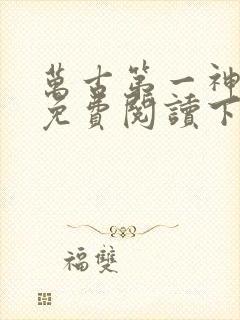 萬古第一神
免費閱讀下
福雙